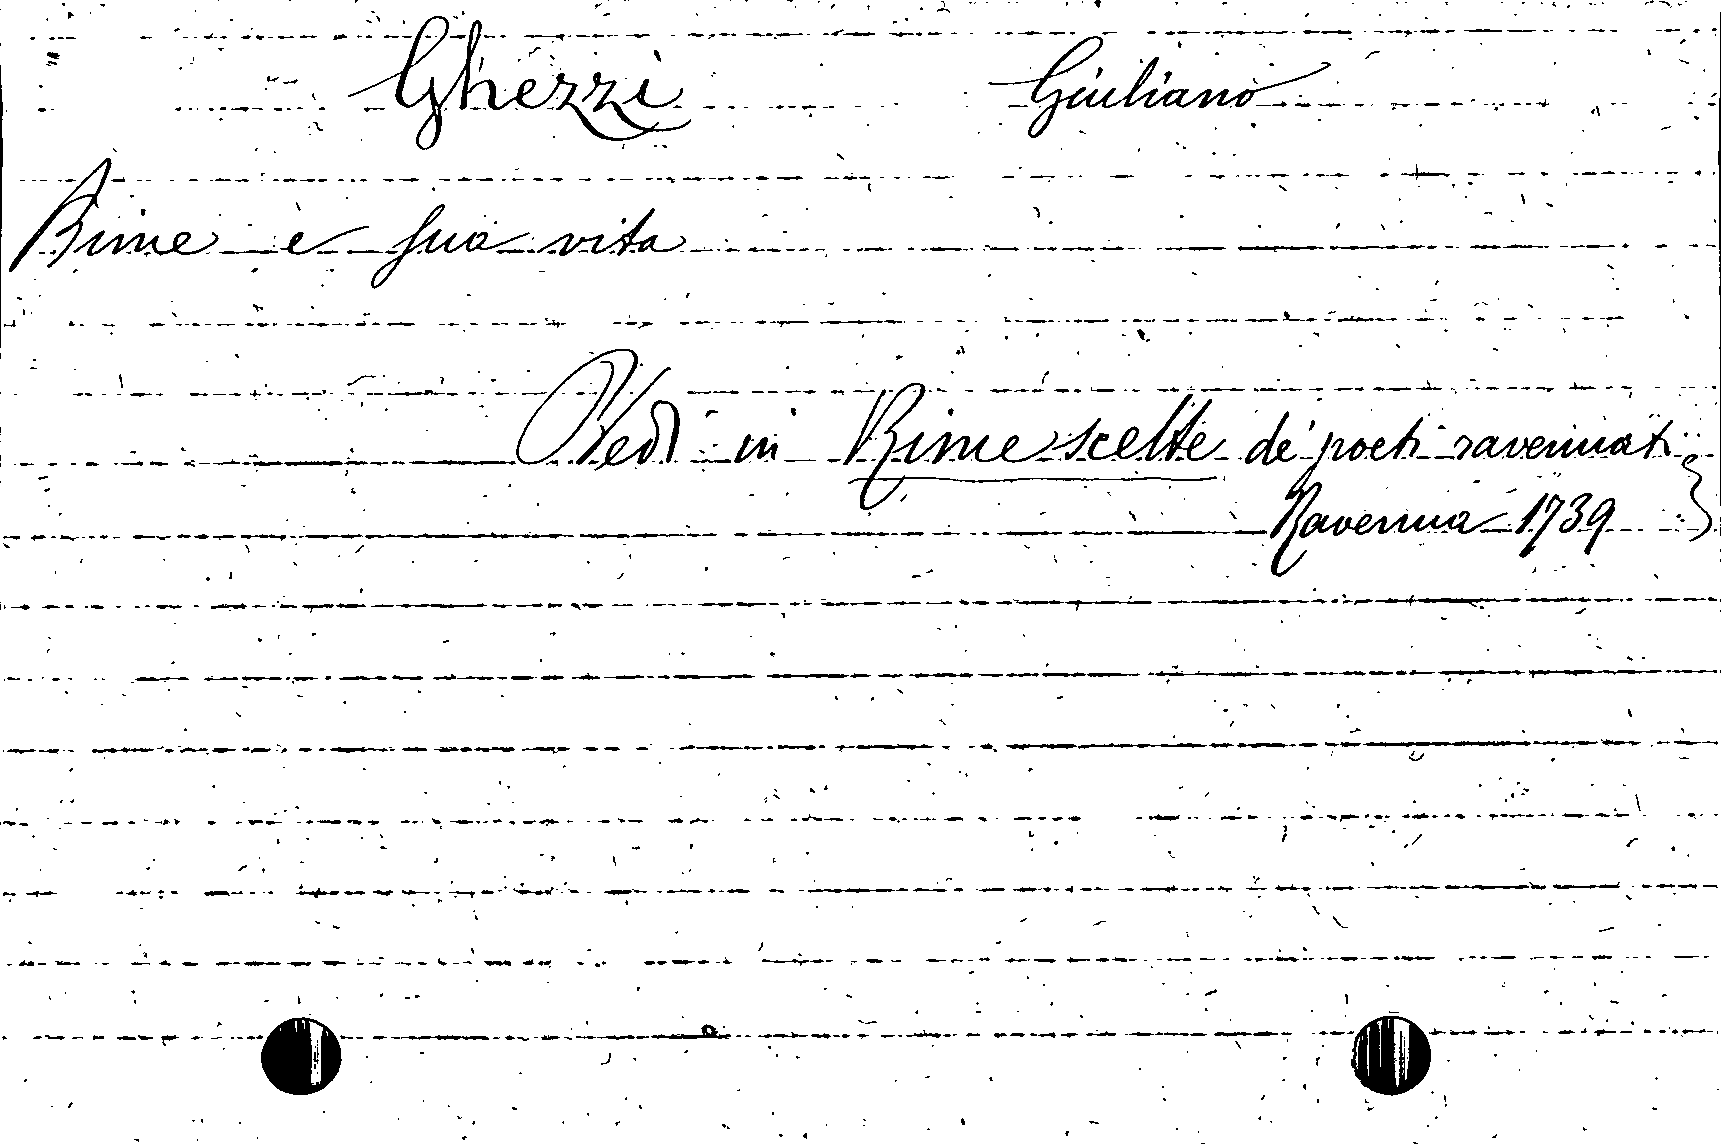 Ghezzi Giuliano
Rime e sua vita
Vedi in Rime scelte de' poeti ravennati
Ravenna 1739 }